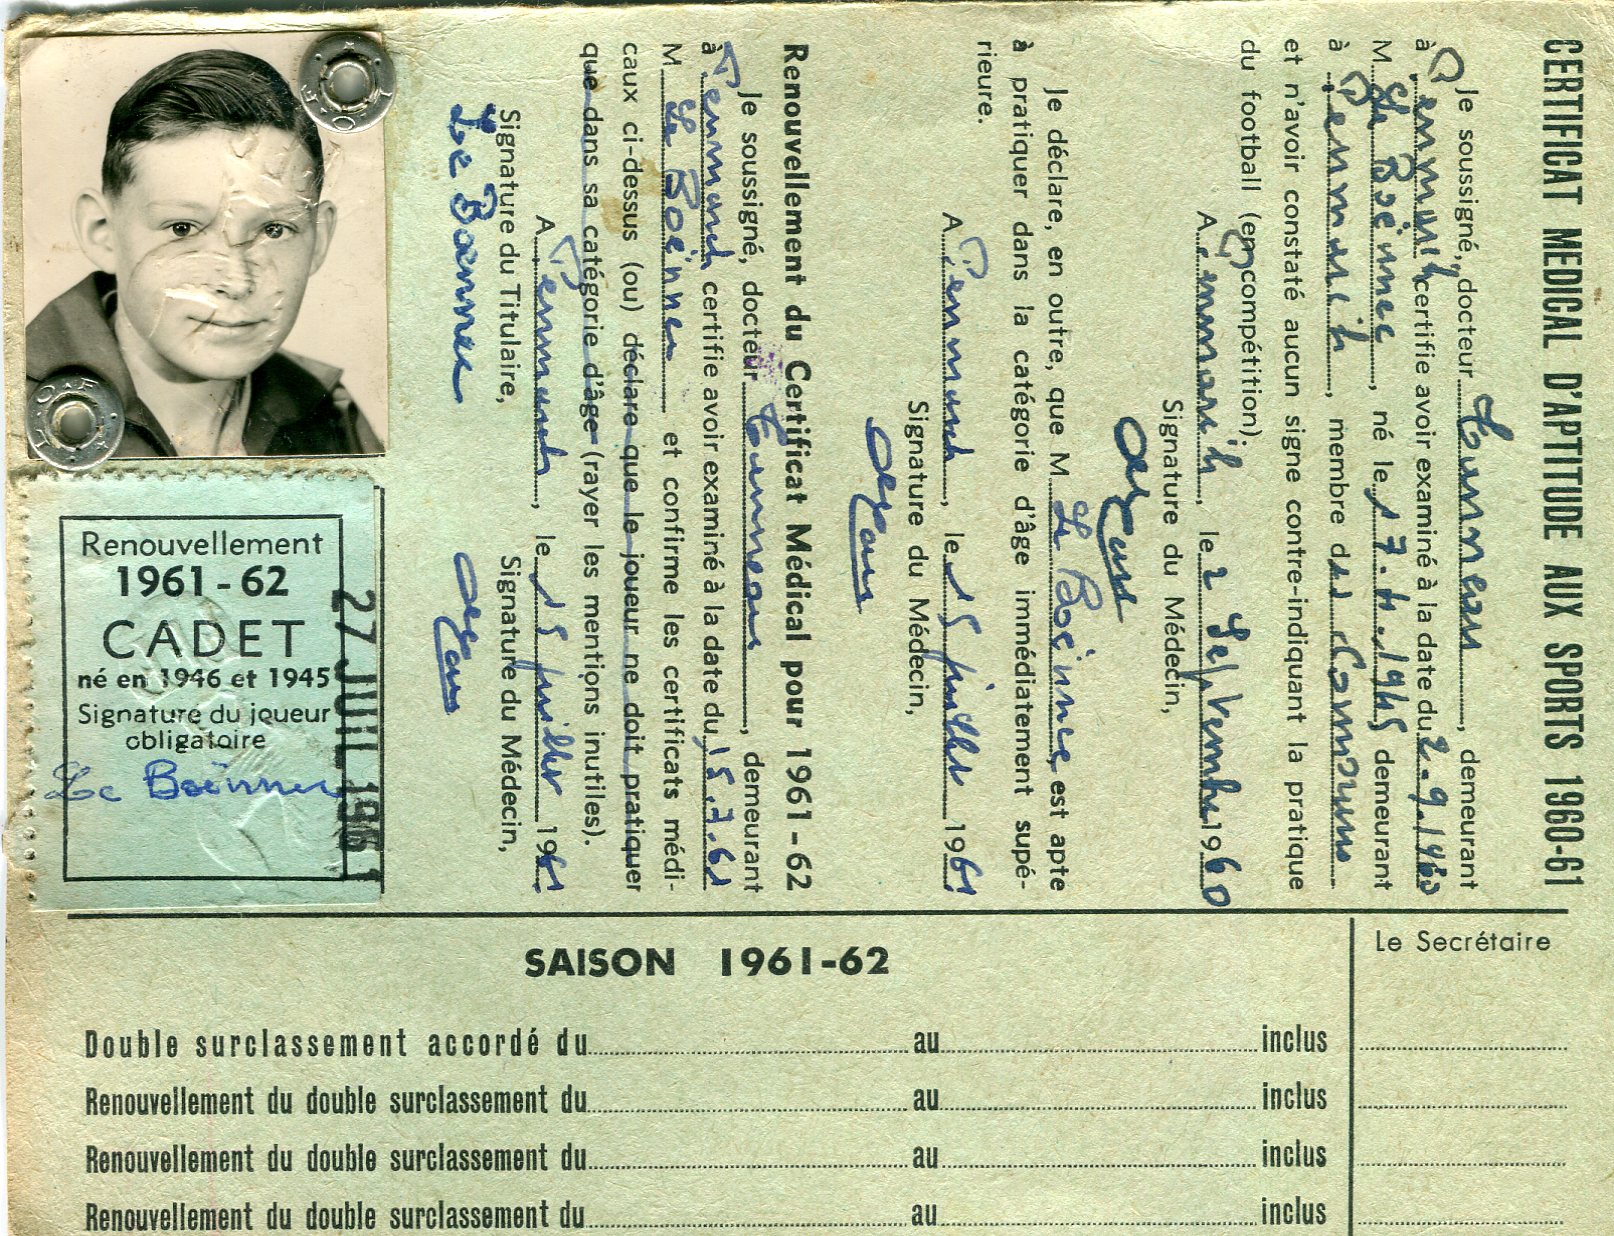 CERTIFICAT MEDICAL D'APTITUDE AUX SPORTS 1960-61
Je soussigné, docteur, demeurant
à Penmarch certifie avoir examiné à la date du 2.9.1960
M. Le Boënnec, né le 17.4.1945 demeurant
à Penmarch, membre des
et n'avoir constaté aucun signe contre-indiquant la pratique
du football (en compétition).
A Penmarch, le 2 Septembre 1960
Signature du Médecin,
Je déclare, en outre, que M. Le Boënnec, est apte
à pratiquer dans la catégorie d'âge immédiatement supé-
rieure.
A Penmarch, le 15 juillet 1961
Signature du Médecin,
Renouvellement du Certificat Médical pour 1961-62
Je soussigné, docteur, demeurant
à Penmarch certifie avoir examiné à la date du 15.7.61
M Le Boënnec et confirme les certificats médi-
caux ci-dessus (ou) déclare que le joueur ne doit pratiquer
que dans sa catégorie d'âge (rayer les mentions inutiles).
A Penmarch, le 15 juillet 1961
Signature du Titulaire, Signature du Médecin,
Le Boennec
Renouvellement
1961-62
CADET
né en 1946 et 1945
Signature du joueur
obligatoire
Le Boënnec
27 JUIL 1961
SAISON 1961-62
Le Secrétaire
Double surclassement accordé du au inclus
Renouvellement du double surclassement du au inclus
Renouvellement du double surclassement du au inclus
Renouvellement du double surclassement du au inclus